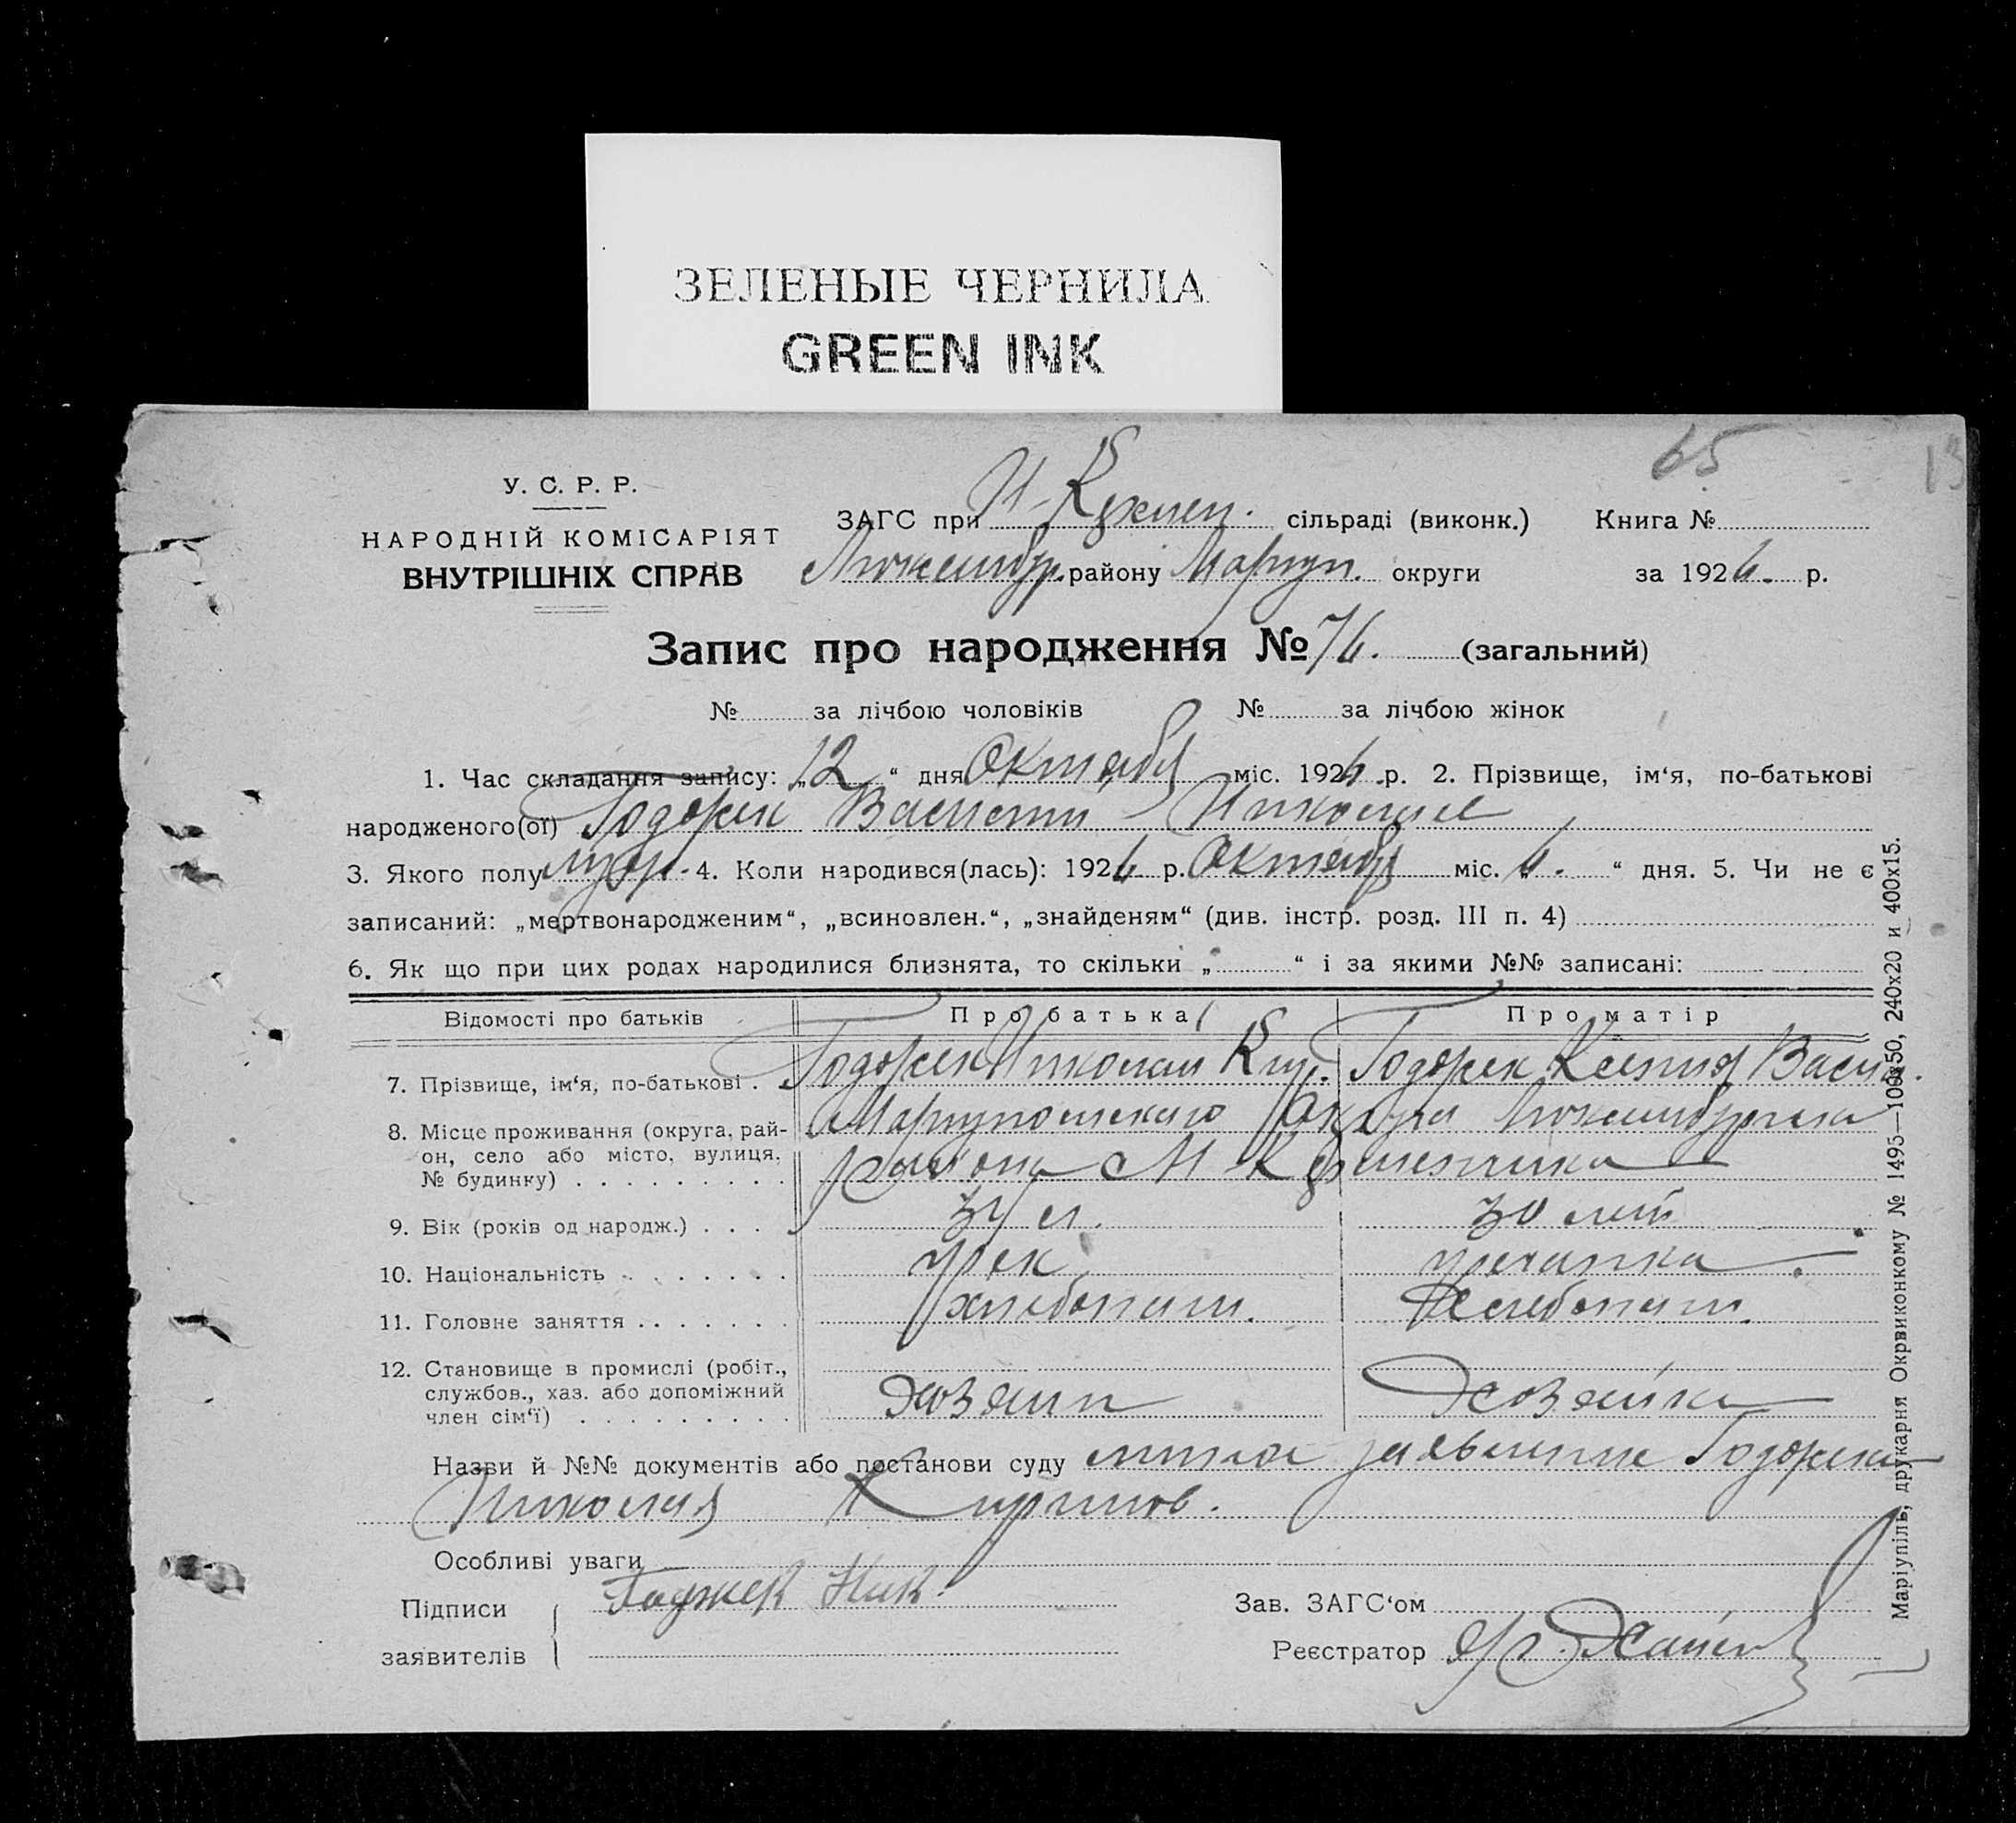 ЗЕЛЕНЫЕ ЧЕРНИЛА
GREEN INK
65
13
У. С. Р. Р.
НАРОДНІЙ КОМІСАРІЯТ
ВНУТРІШНІХ СПРАВ
ЗАГС при сільраді (виконк.) Книга №
району Мариуп. округи за 1926. р.
Запис про народження № 76. (загальний)
№ за лічбою чоловіків № за лічбою жінок
1. Час складання запису: „12“ дня Октября міс. 1926 р. 2. Прізвище, ім‘я, по-батькові
народженого(ої)
3. Якого полу муж. 4. Коли народився(лась): 1926 р. Октября міс. „6.“ дня. 5. Чи не є
записаний: „мертвонародженим“, „всиновлен.“, „знайденям“ (див. інстр. розд. III п. 4)
6. Як що при цих родах народилися близнята, то скільки „ “ і за якими №№ записані:
Відомості про батьків Про батька Про матір
7. Прізвище, ім‘я, по-батькові . Годжек Николай Кир. Годжек Ксения Васил.
8. Місце проживання (округа, рай-
он, село або місто, вулиця,
№ будинку) Мариупольскаго Округа
района
9. Вік (років од народж.) 30 лет
10. Національність грек гречанка
11. Головне заняття хлебопаш. Хлебопаш.
12. Становище в промислі (робіт.,
службов., хаз. або допоміжний
член сім‘ї) Хозяин Хозяйка
Назви й №№ документів або постанови суду личное заявление Годжека
Николая Кириллов.
Особливі уваги
Підписи Годжек Ник. Зав. ЗАГС‘ом
заявителів Реєстратор
Маріупіль, друкарня Окрвиконкому № 1495—100х50, 240х20 и 400х15.